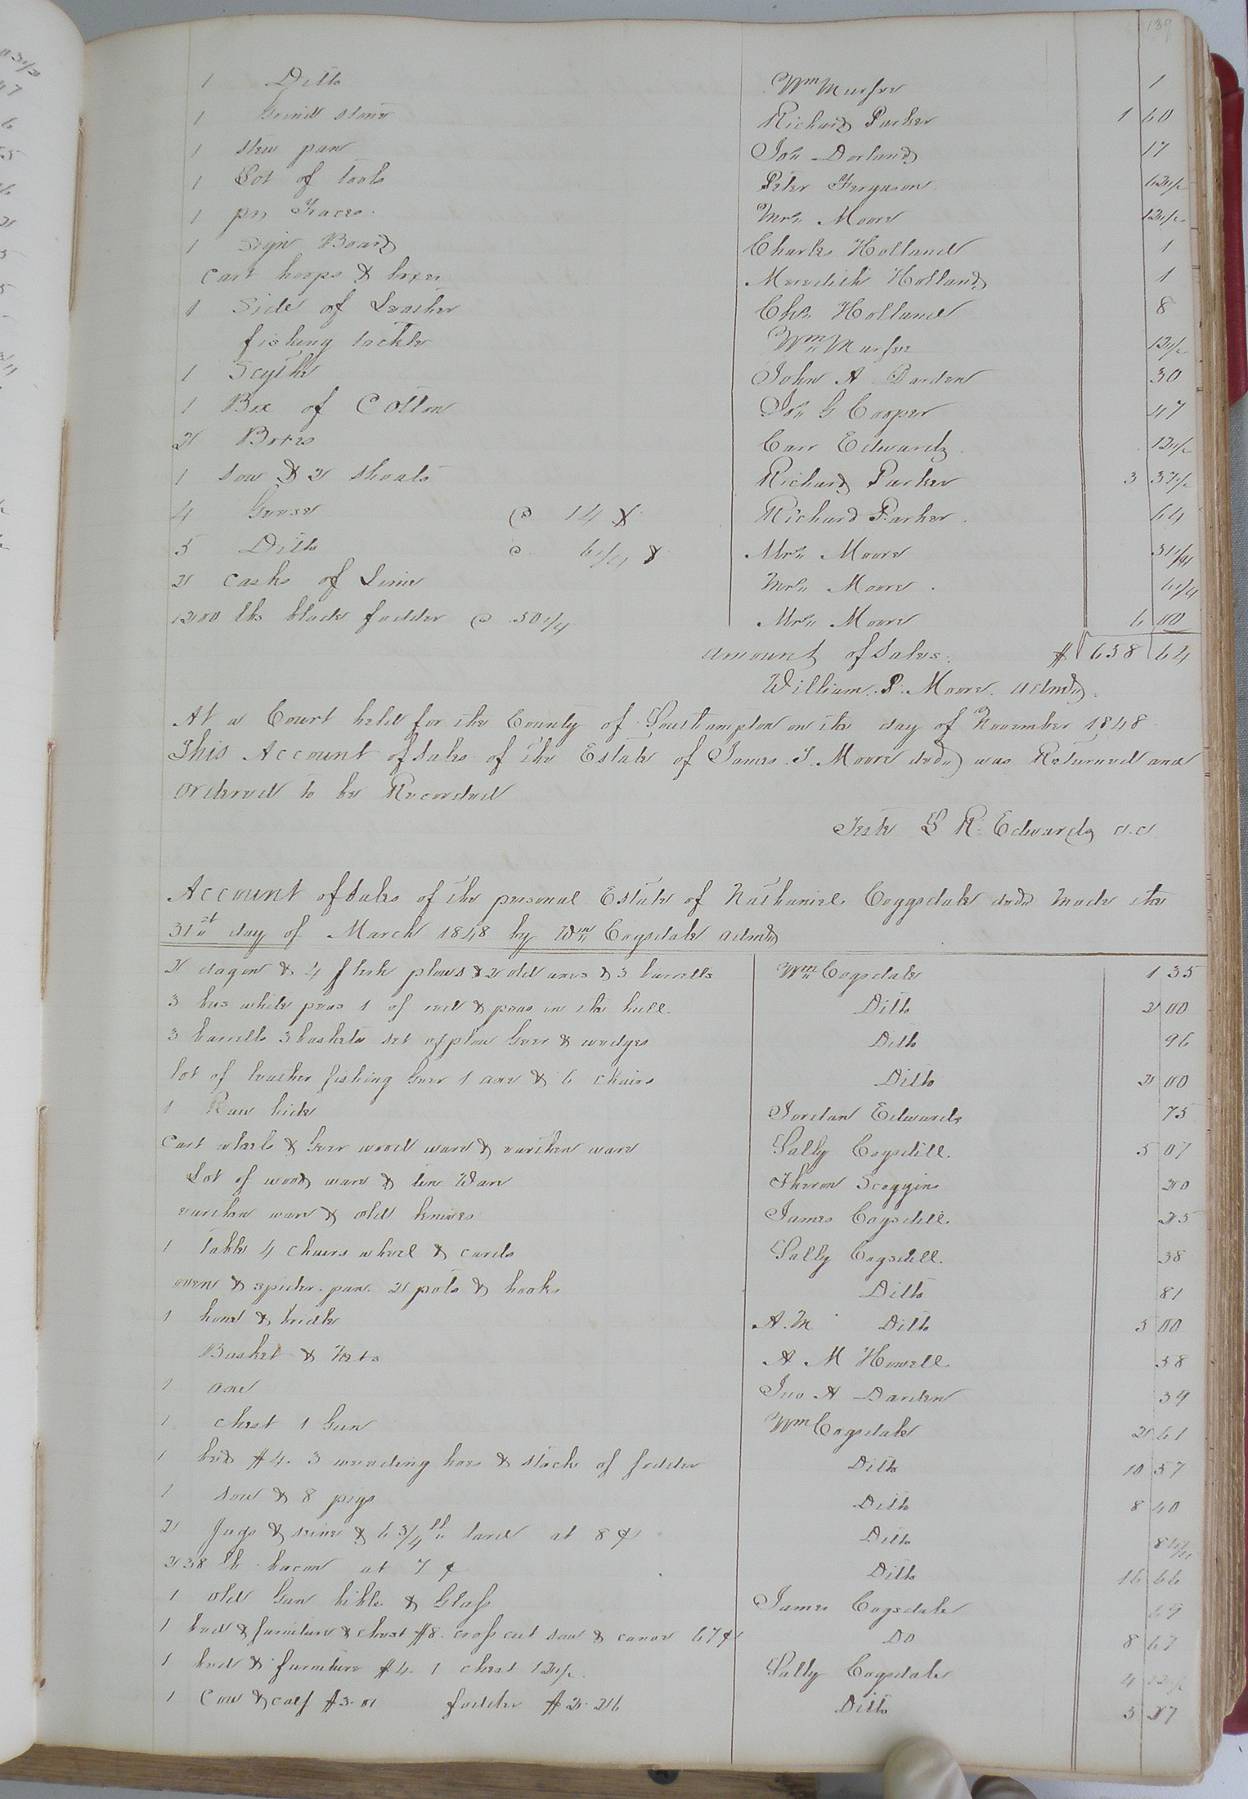 139
1 Ditto Wm Murfee 1
1 Grind stone Richard Parker 1 60
1 Stew pan Jno Dorland 17
1 Lot of tools Peter Ferguson 62 1/2
1 pr Traces Mrs Moore 12 1/2
1 Sign Board Charles Holland 1
Cart hoops & boxes Meredith Holland 1
1 Side of Leather Chs Holland 8
fishing tackle Wm Murfee 12 1/2
1 Scythe John A Darden 30
1 Box of Cotton Jno G Cooper 47
2 Boxes Carr Edwards 12 1/2
1 sow & 2 shoats Richard Parker 3 37 1/2
4 Geese @ 14 ¢ Richard Parker 64
5 Ditto @ 6 1/4 ¢ Mrs Moore 31 1/4
2 casks of Lime Mrs Moore 6 1/4
1200 lbs blade fodder @ 50 1/4 Mrs Moore 6 00
Amount of Sales $ 638 64
William P. Moore admr
At a Court held for the County of Southampton on the day of November 1848
This Account of Sales of the Estate of James T. Moore decd was Returned and
Ordered to be Recorded
Teste L R Edwards c.c
Account of Sales of the personal Estate of Nathaniel Coggsdale decd made the
31st day of March 1848 by Wm Cogsdale admr
2 dagon & 4 flesh plows & 2 old axes & 3 barrells Wm Cogsdale 1 35
3 bus white peas 1 of red & peas in the hull Ditto 2 00
3 barrells 3 baskets set of plow Geer & wedges Ditto 96
lot of leather fishing Geer 1 axe & 6 chairs Ditto 2 00
1 Raw hide Jordan Edwards 75
Cart wheels & Geer wood ware & earthen ware Sally Cogsdell 5 07
Lot of wood ware & tin Ware Theron Scoggins 20
earthen ware & old knives James Cogsdell 25
1 table 4 chairs wheel & cards Sally Cogsdell 38
oven & spider pan 2 pots & hooks Ditto 81
1 horse & bridle A. M Ditto 5 00
Basket & Nets A M Howell 58
1 axe Jno A Darden 39
1 chest 1 Gun Wm Cogsdale 2 61
1 bed $4. 3 weeding hoes & stack of fodder Ditto 10 57
1 sow & 8 pigs Ditto 8 40
2 Jugs & seine & 6 3/4 lb lard at 8 ¢ Ditto
238 lb bacon at 7 ¢ Ditto 16 66
1 old Gun bible & Glass James Cogsdale 69
1 bed & furniture & chest $8. cross cut saw & canoe 67 ¢ Do 8 67
1 bed & furniture $4. 1 chest 12 1/2 Sally Cogsdale 4 12 1/2
1 Cow & calf $3.01 fodder $2.26 Ditto 5 27